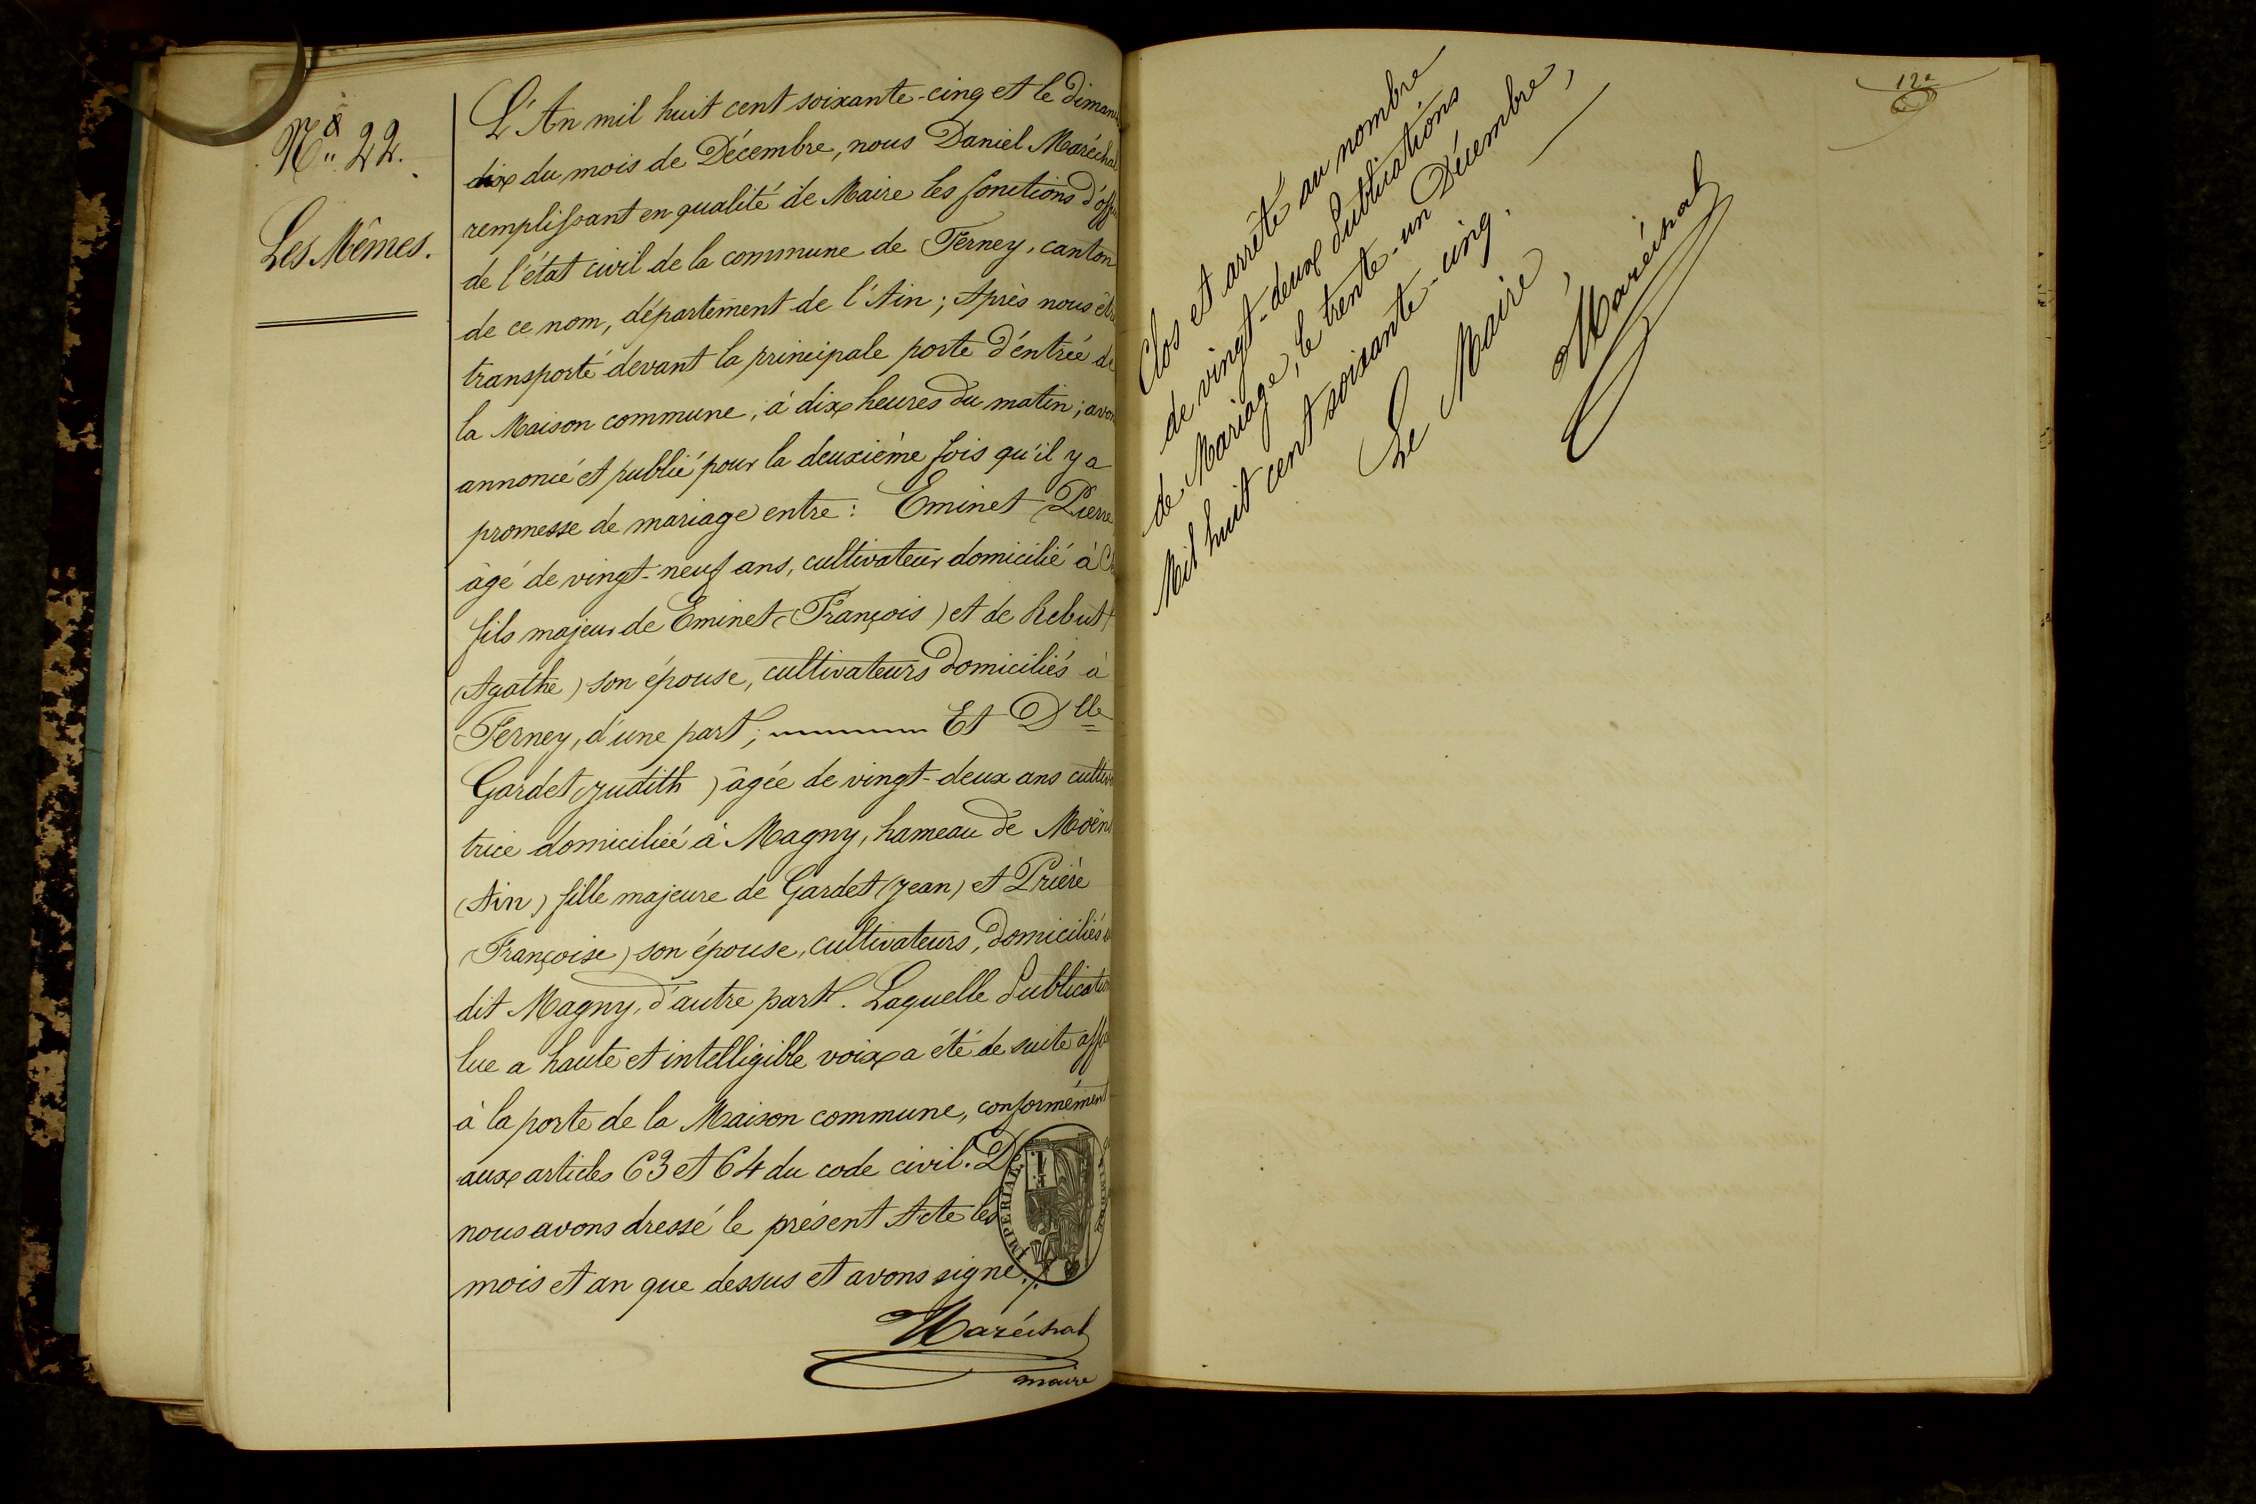 No 22.
Les Mêmes.
L'An mil huit cent soixante-cinq et le Diman
dix du mois de Décembre, nous Daniel Maréchal
remplissant en qualité de Maire les fonctions d'offi
de l'état civil de la commune de Ferney, canton
de ce nom, département de l'Ain; Après nous êtr
transporté devant la principale porte d'entrée de
la Maison commune, à dix heures du matin; avon
annoncé et publié pour la deuxième fois qu'il y a
promesse de mariage entre: Eminet Pierre
âgé de vingt-neuf ans, cultivateur domicilié à
fils majeur de Eminet (François) et de Rebut
(Agathe) son épouse, cultivateurs domiciliés à
Ferney, d'une part; Et Dlle
Gardet (Judith) âgée de vingt-deux ans cultiva
trice domiciliée à Magny, hameau de Moëns
(Ain) fille majeure de Gardet (Jean) et Prière
(Françoise) son épouse, cultivateurs, domiciliés
dit Magny, d'autre part. Laquelle Publication
lue a haute et intelligible voix a été de suite affi
à la porte de la Maison commune, conformément
aux articles 63 et 64 du code civil. D
nous avons dressé le présent Acte les
mois et an que dessus et avons signé./.
IMPERIAL
Maréchal
maire
Clos et arrêté au nombre
de vingt-deux Publications
de Mariage, le trente-un Décembre,
Mil huit cent soixante-cinq.
Le Maire,
Maréchal
12e